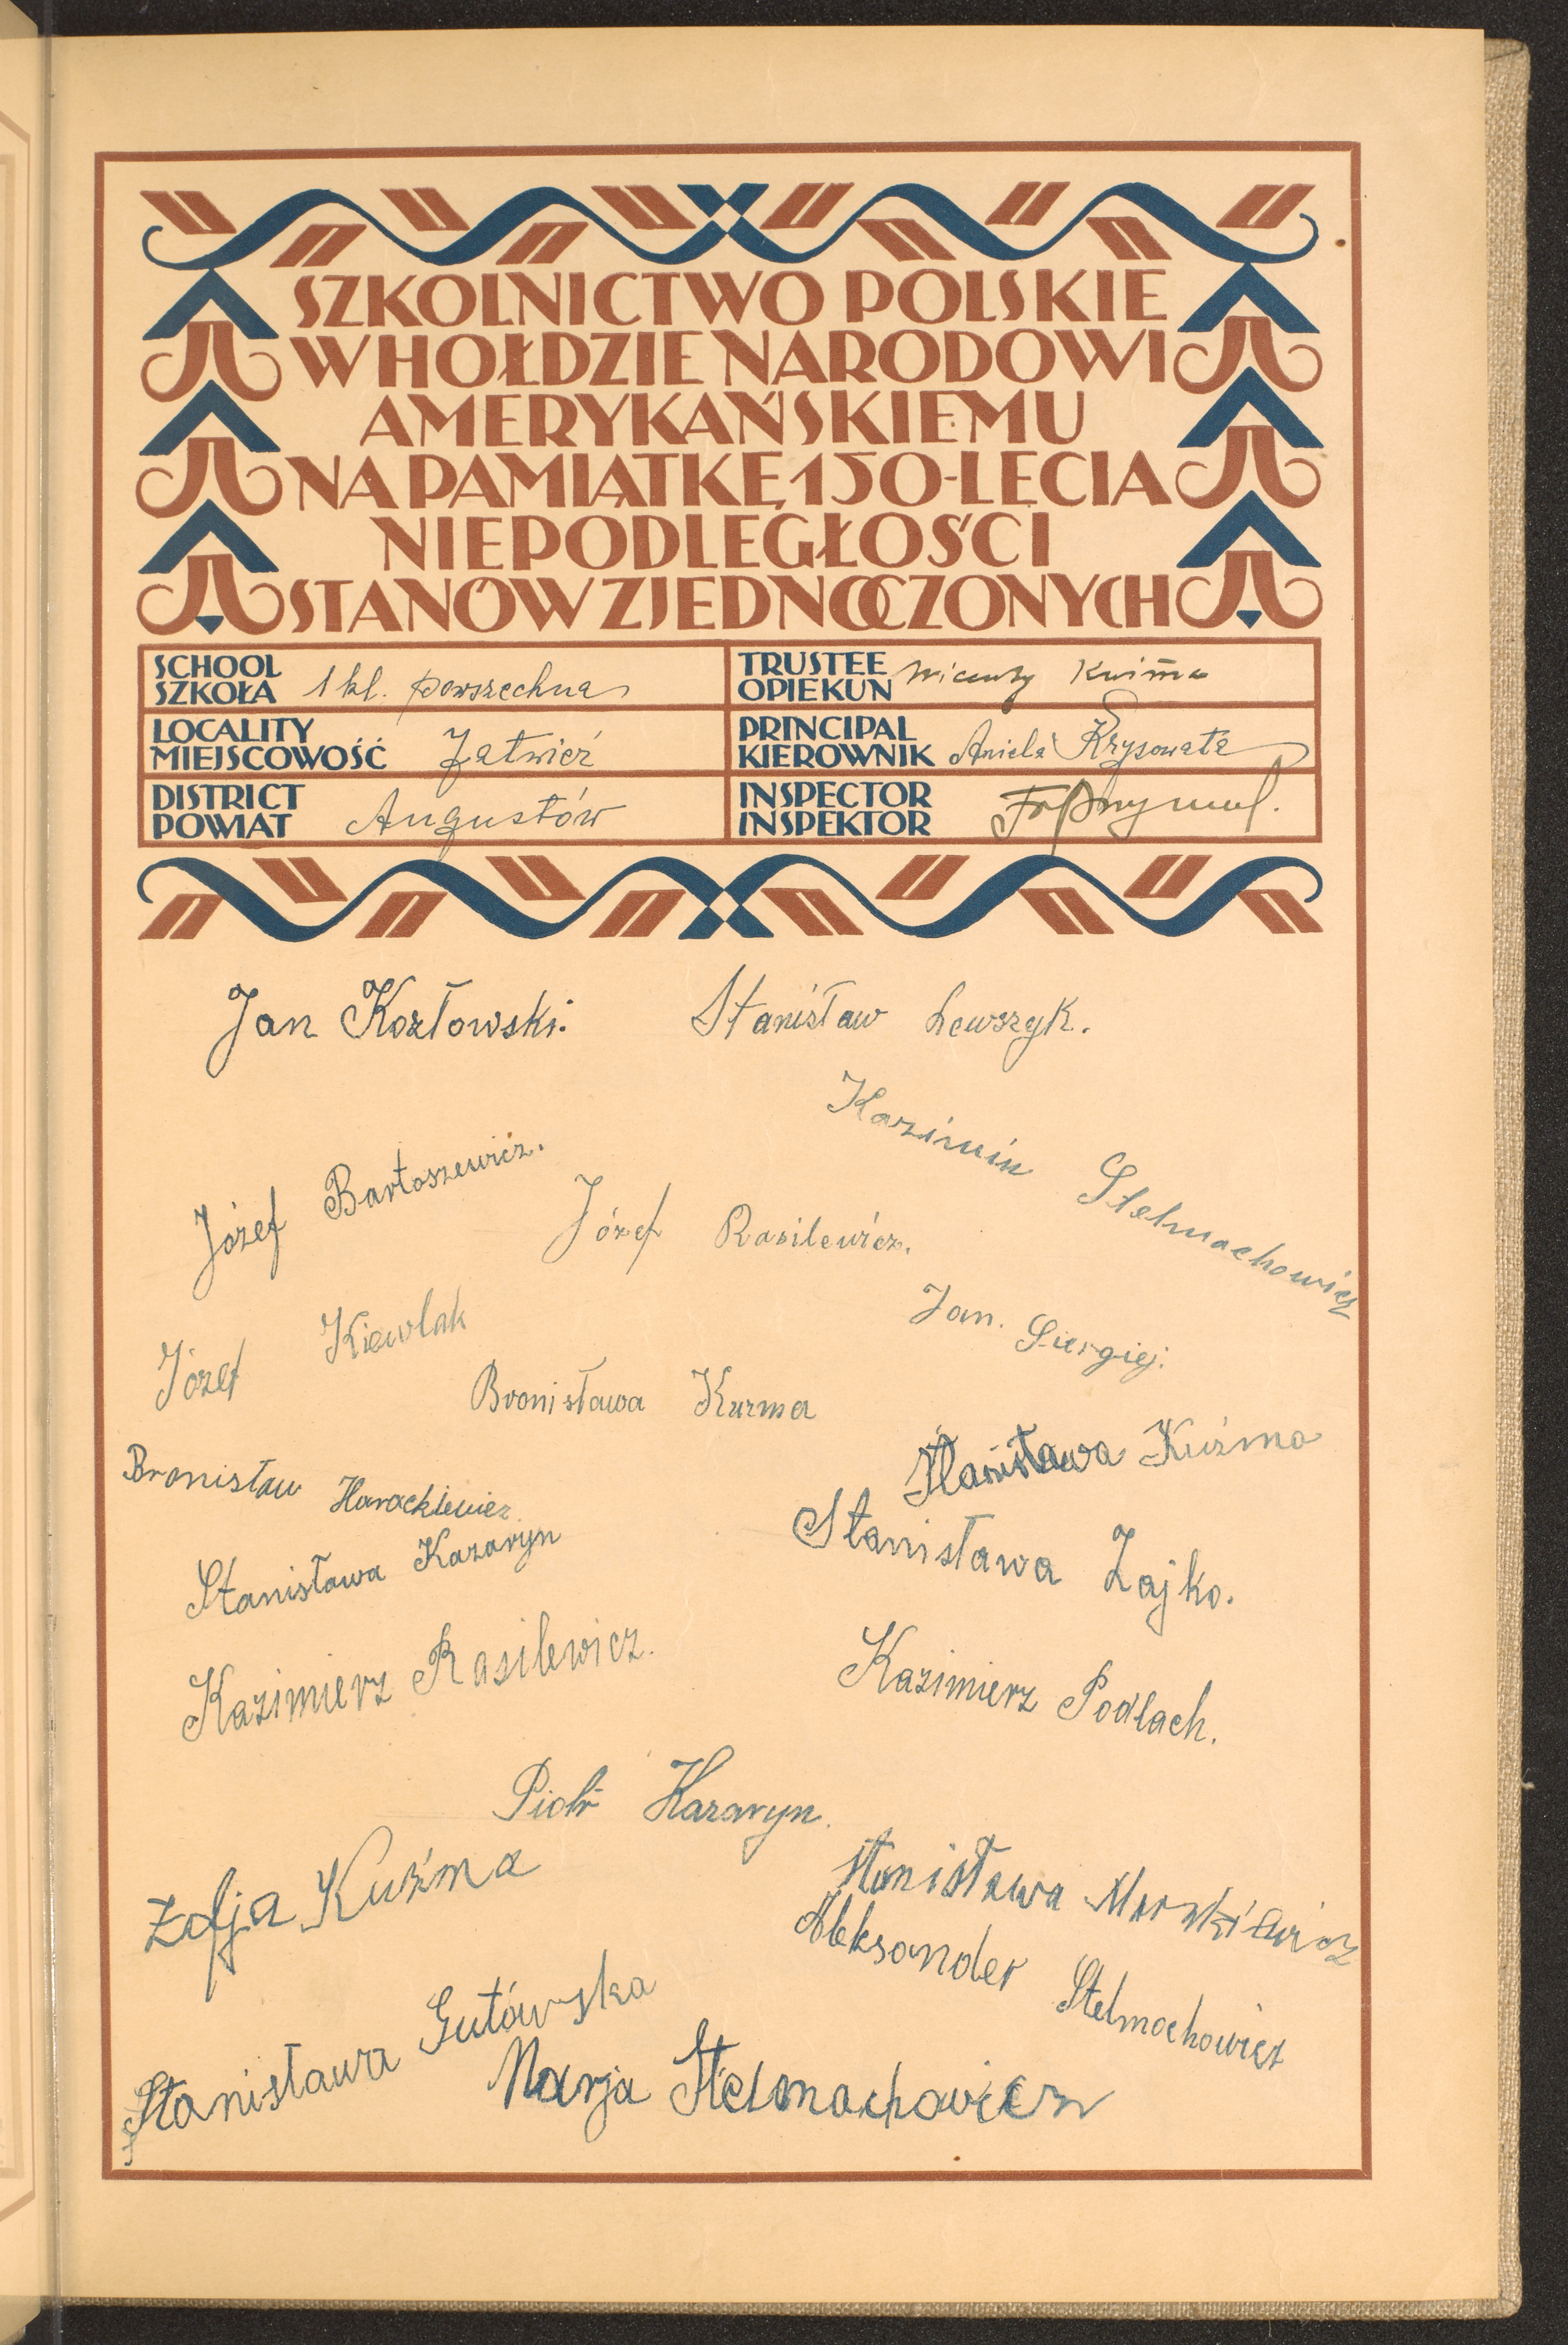 SZKOLNICTWO POLSKIE
W HOŁDZIE NARODOWI
AMERYKAŃSKIEMU
NA PAMIĄTKĘ 150-LECIA
NIEPODLEGŁOŚCI
STANÓW ZJEDNOCZONYCH
SCHOOL
SZKOŁA 1 kl. powszechna
TRUSTEE
OPIEKUN Wincenty Kuźma
LOCALITY
MIEJSCOWOŚĆ Jatwieź
PRINCIPAL
KIEROWNIK Aniela Krysowata
DISTRICT
POWIAT Augustów
INSPECTOR
INSPEKTOR
Jan Kozłowski.
Stanisław Lewszyk.
Kazimier Stelmachowicz
Józef Bartoszewicz.
Józef Rasilewicz.
Jan. Siergiej.
Józef Kiewlak
Bronisława Kuzma
Stanisława Kuźma
Bronisław Harackiewicz.
Stanisława Zajko.
Stanisława Kazaryn
Kazimierz Rasilewicz.
Kazimierz Podlach.
Piotr Kazaryn.
Zofja Kuźma
Stanisława
Aleksander Stelmachowicz
Stanisława Gutówska
Marja Stelmachowicz